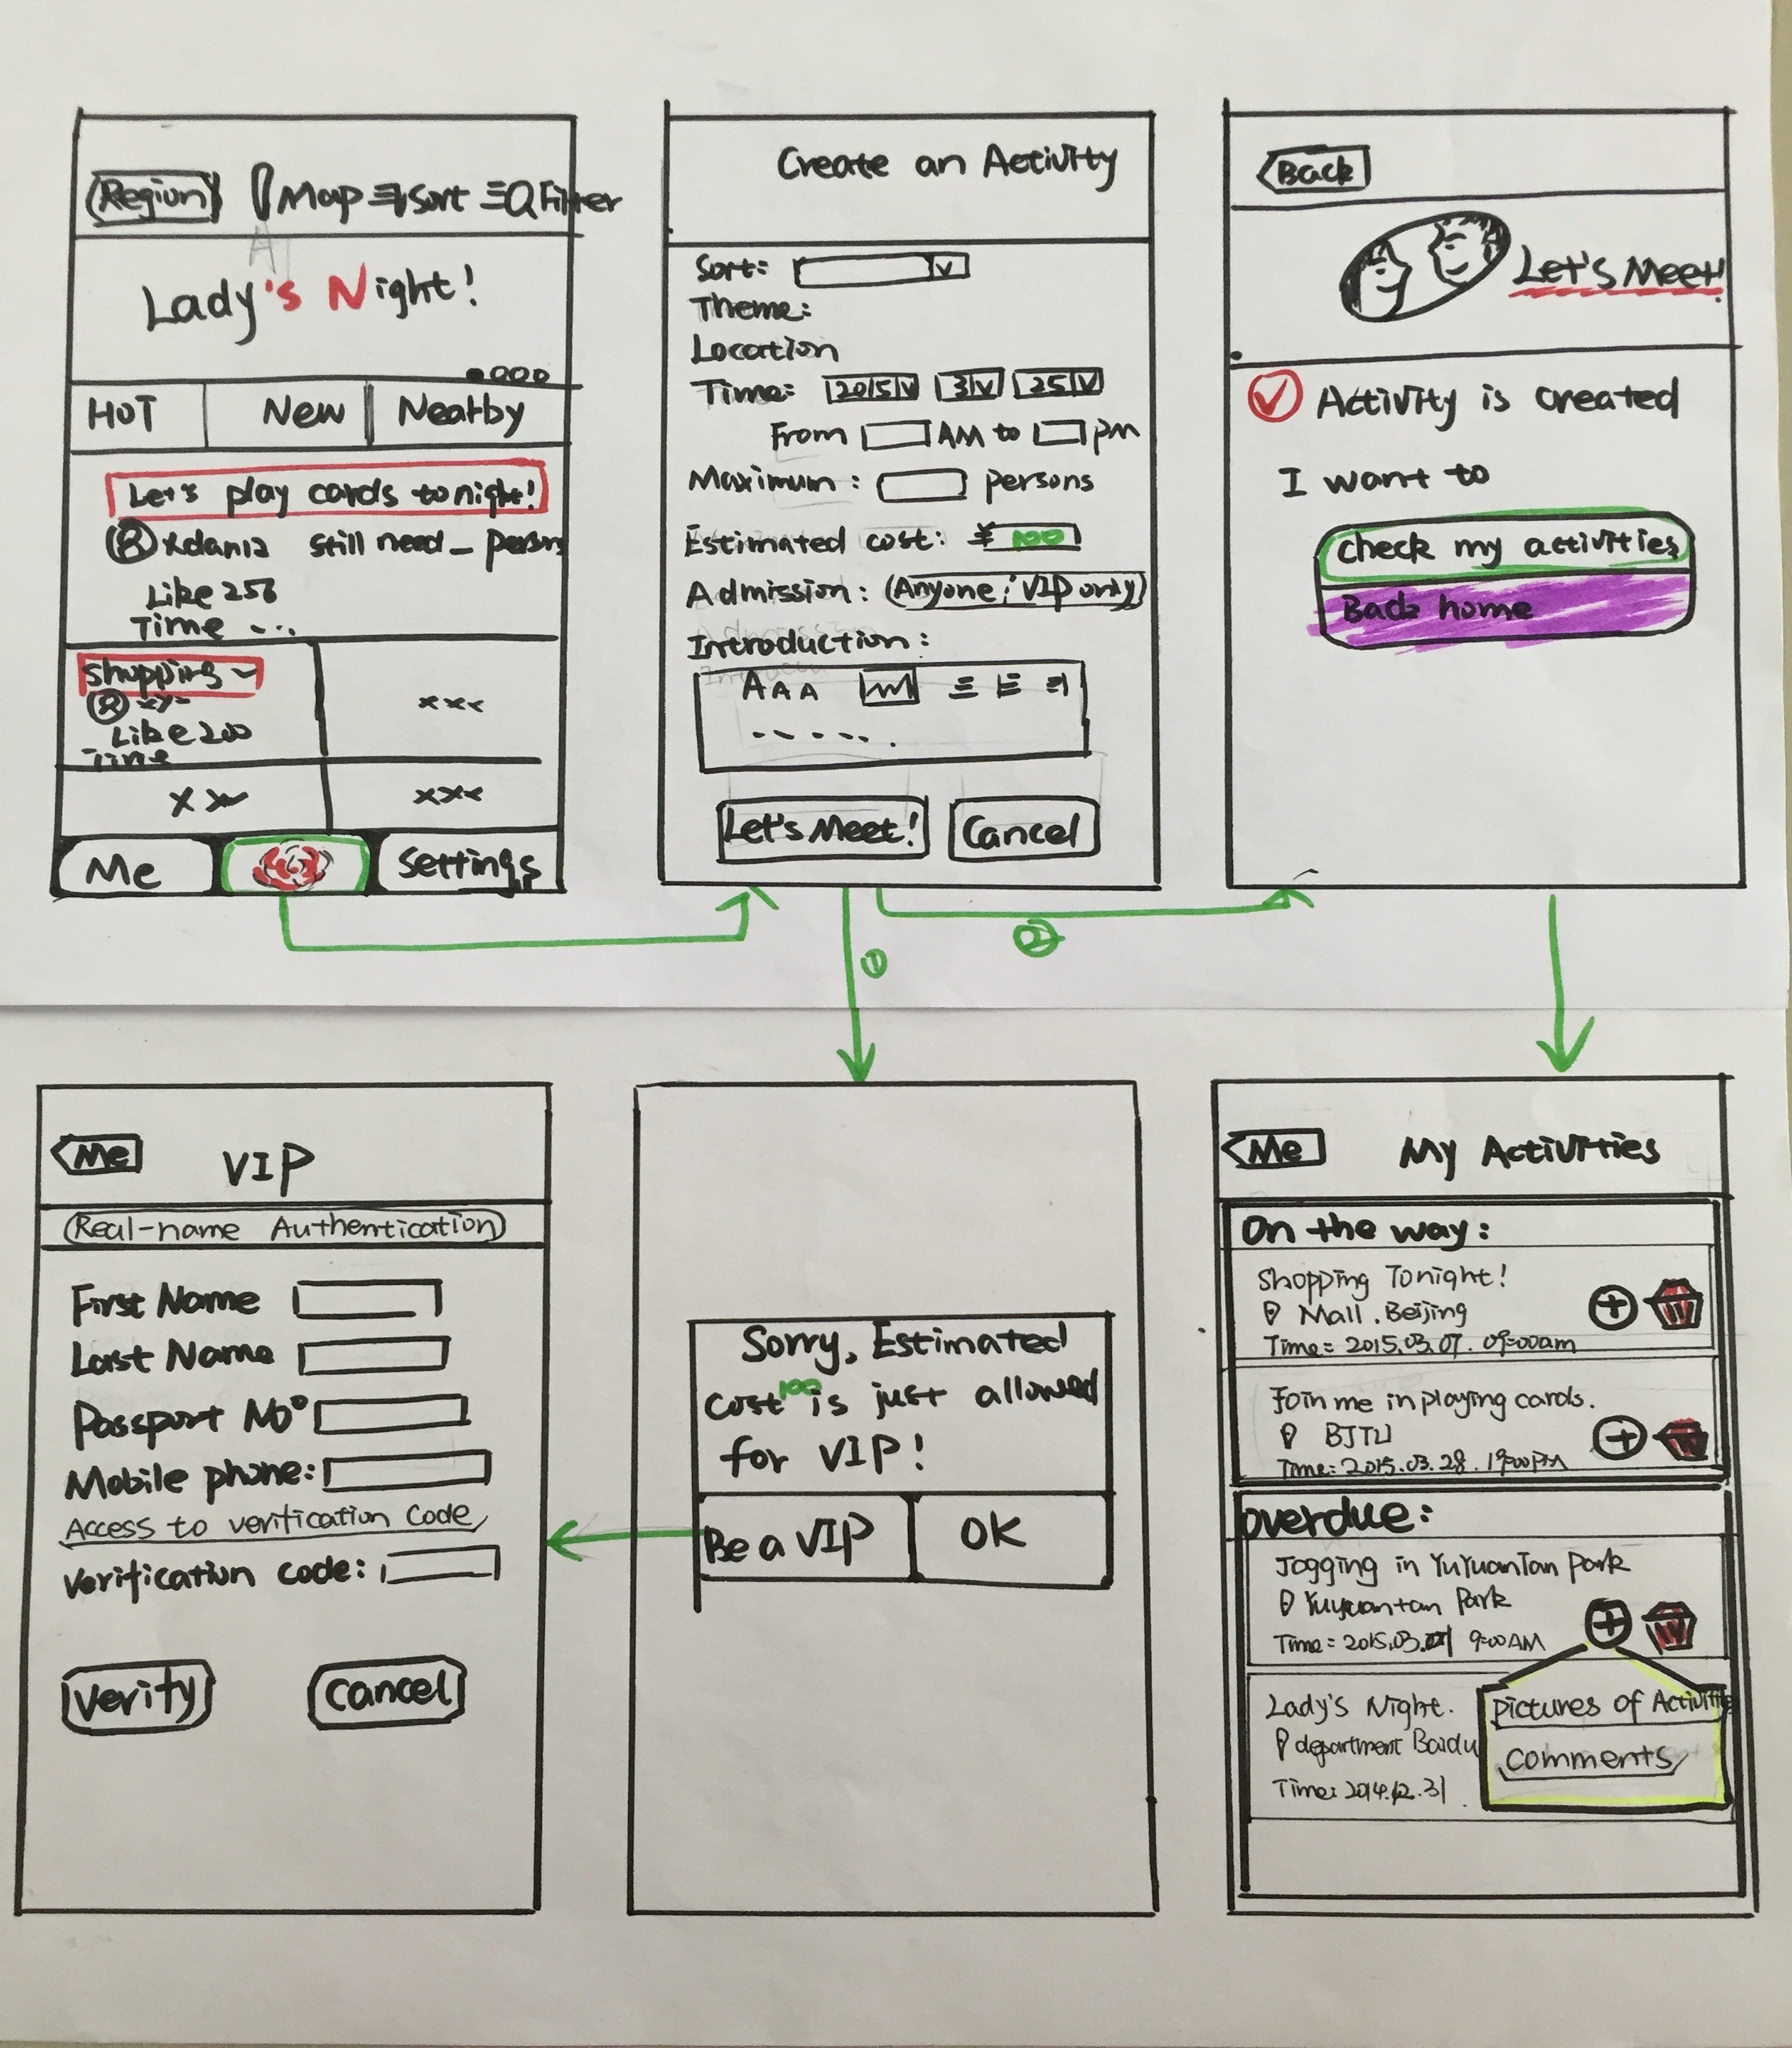 Region Map Sort Filter
Lady's Night!
HOT New Nearby
Let's play cards tonight!
still need _ person
Like 256
Time ...
Shopping
Like 200
Time
xxx
xxx
xxx
Me Settings
Create an Activity
Sort: v
Theme:
Location
Time: 2015 v 3 v 25 v
From AM to pm
Maximum: persons
Estimated cost: ¥ 100
Admission: (Anyone; VIP only)
Introduction:
A A A
......
Let's Meet! Cancel
Back
Let's Meet!
Activity is created
I want to
check my activities
Back home
①
②
Me VIP
Real-name Authentication
First Name
Last Name
Passport No
Mobile phone:
Access to verification Code
Verification code:
Verify Cancel
Sorry, Estimated
cost 100 is just allowed
for VIP!
Be a VIP OK
Me My Activities
On the way:
Shopping Tonight!
Mall. Beijing
Time: 2015.03.07. 09:00am
Join me in playing cards.
BJTU
Time: 2015.03.28. 19:00PM
overdue:
Jogging in YuYuanTan Park
Yuyuantan Park
Time: 2015.03.07 9:00AM
Lady's Night.
department Baidu
Time: 2014.12.31
pictures of Activities
comments